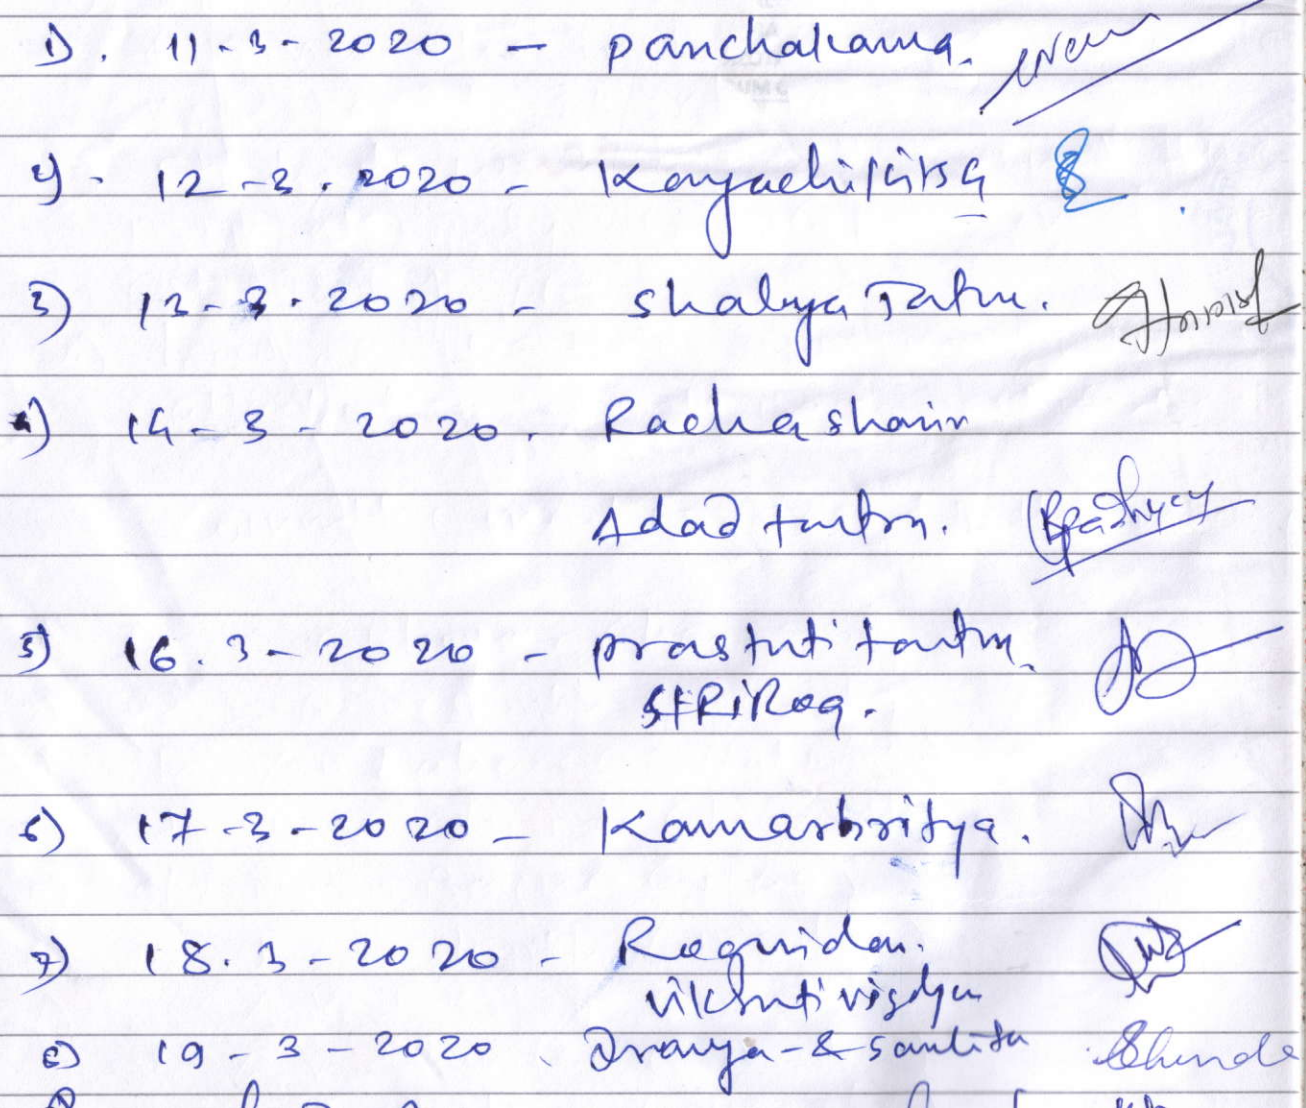 1). 11-3-2020 - Panchakama.
2). 12-3.2020 - Kayachikitsa
3) 13-3.2020 - Shalya Tatm.
4) 14-3-2020. Racha sharir
Adad tantra.
5) 16.3-2020 - prastuti tantra.
STRIROG.
6) 17-3-2020 - Kamarbritya.
7) 18.3-2020 - Rognidan.
vikhruti vigdyan
8) 19-3-2020 - Dravya-& sanhita Shinde